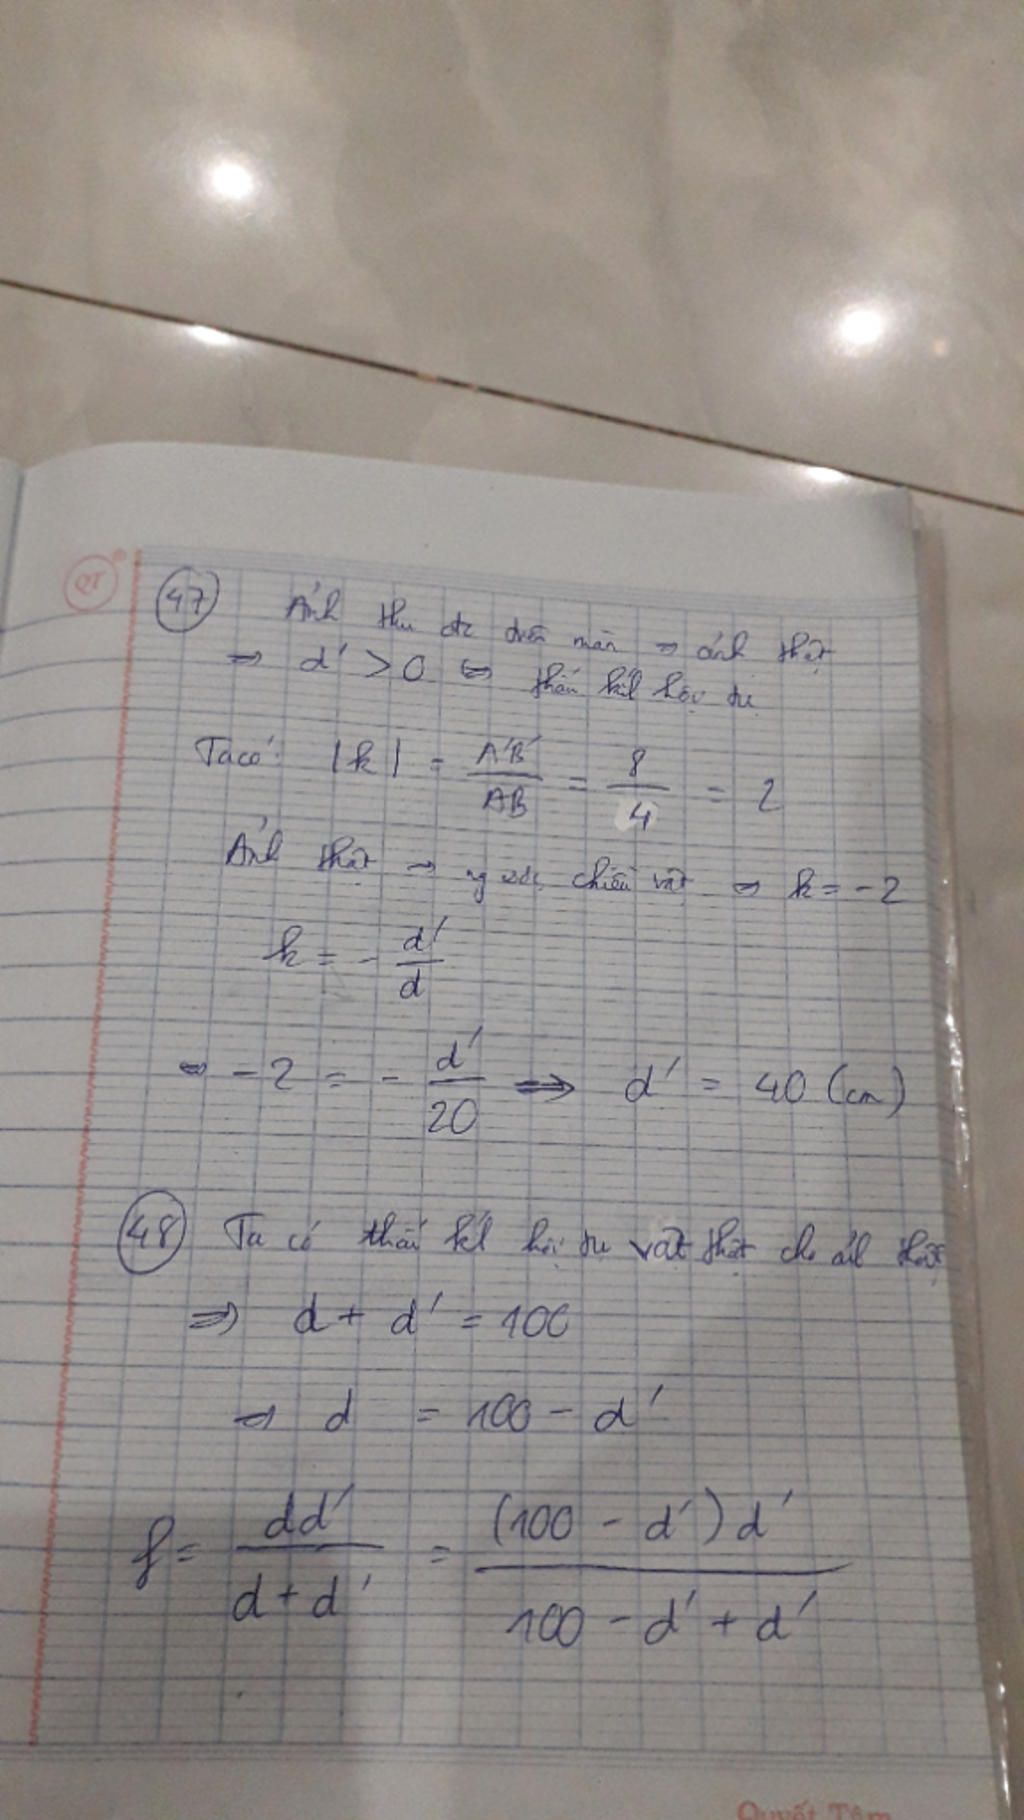 QT
47 Ảnh thu đc trên màn ⇒ ảnh thật
⇒ d' > 0 ⇔ thấu kí hội tụ
Ta có: |k| = A'B'/AB = 8/4 = 2
Ảnh thật → ngược chiều vật ⇒ k = -2
k = - d'/d
⇔ -2 = - d'/20 ⇒ d' = 40 (cm)
48 Ta có thấu kí hội tụ vật thật cho ảh thật
⇒ d + d' = 100
⇒ d = 100 - d'
f = dd'/d + d' = (100 - d')d'/100 - d' + d'
Quyết Tâm